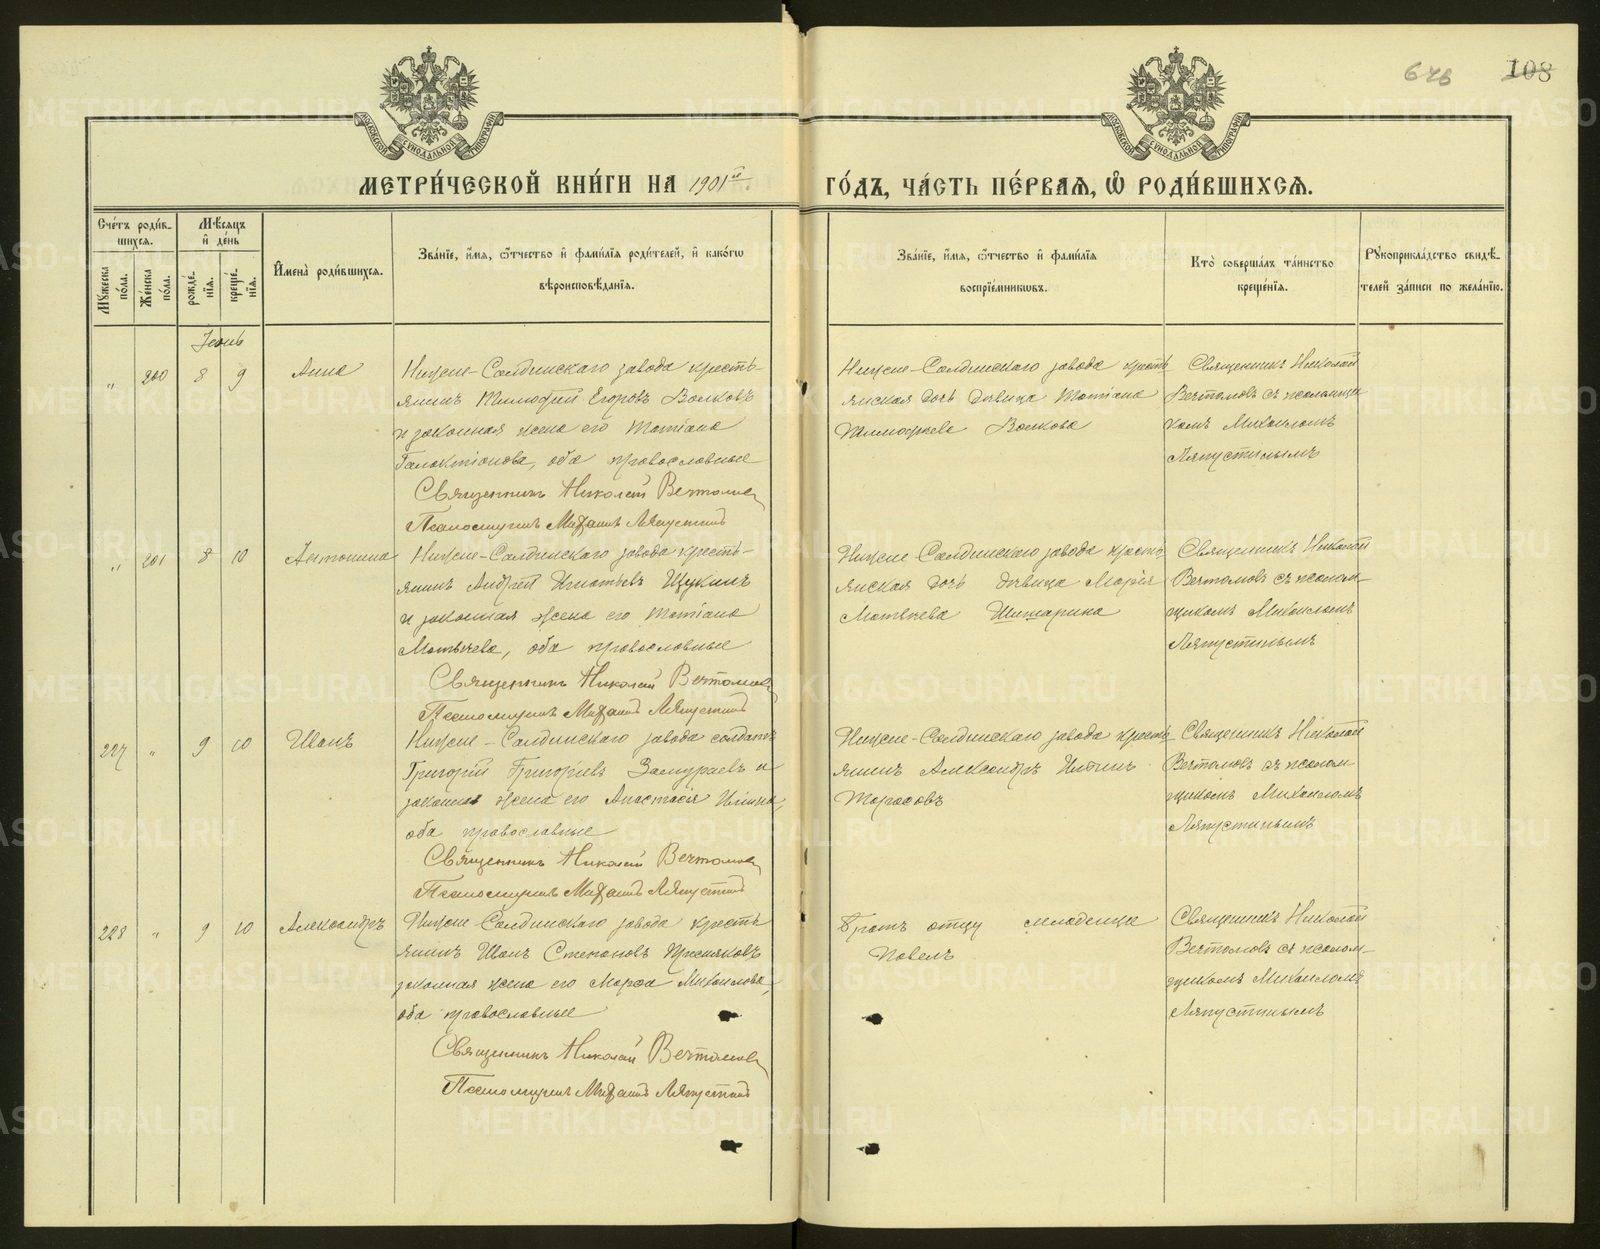 648 108
МОСКОВСКОЙ СѴНОДАЛЬНОЙ ТИПОГРАФІИ
МОСКОВСКОЙ СѴНОДАЛЬНОЙ ТИПОГРАФІИ
МЕТРИ́ЧЕСКОЙ КНИ́ГИ НА 1901й
ГО́ДЪ, ЧА́СТЬ ПЕ́РВАЯ, Ѽ РОДИ́ВШИХСЯ.
Сче́тъ роди́вшихся.
Му́жеска по́ла.
Же́нска по́ла.
Мѣ́сяцъ и҆ де́нь
рожде́нїя.
креще́нїя.
И҆мена̀ роди́вшихся.
Зва́нїе, и҆́мя, ѻ҆́тчество и҆ фами́лїя роди́телей, и҆ како́гѡ
вѣроисповѣ́данїя.
Зва́нїе, и҆́мя, ѻ҆́тчество и҆ фами́лїя
воспрїе́мникѡвъ.
Кто̀ соверша́лъ та́инство
креще́нїя.
Рꙋкоприкла́дство свидѣ́-
телей за́писи по жела́нїю.
Іюнь
" 200 8 9 Анна
Нижне-Салдинскаго завода кресть-
янинъ Тимофей Егоровъ Волковъ
и законная жена его Татіана
Галактіонова, оба православные
Священникъ Николай Вечтомовъ
Псаломщикъ Михаилъ Ляпустинъ
Нижне-Салдинскаго завода кресть
янская дочь дѣвица Татіана
Тимофеева Волкова
Священникъ Николай
Вечтомовъ съ псаломщи
комъ Михаиломъ
Ляпустинымъ
" 201 8 10 Антонина
Нижне-Салдинскаго завода кресть-
янинъ Андрей Игнатьевъ Щукинъ
и законная жена его Татіана
Матвѣева, оба православные
Священникъ Николай Вечтомовъ
Псаломщикъ Михаилъ Ляпустинъ
Нижне-Салдинскаго завода кресть
янская дочь дѣвица Марія
Матвѣева Шишарина
Священникъ Николай
Вечтомовъ съ псалом-
щикомъ Михаиломъ
Ляпустинымъ
227 " 9 10 Иванъ
Нижне-Салдинскаго завода солдатъ
Григорій Григорьевъ Замураевъ и
законная жена его Анастасія Ильина,
оба православные
Священникъ Николай Вечтомовъ
Псаломщикъ Михаилъ Ляпустинъ
Нижне-Салдинскаго завода кресть
янинъ Александръ Ильинъ
Тарасовъ
Священникъ Николай
Вечтомовъ съ псалом-
щикомъ Михаиломъ
Ляпустинымъ
228 " 9 10 Александръ
Нижне-Салдинскаго завода кресть
янинъ Иванъ Степановъ Пресняковъ
законная жена его Марфа Михаилова,
оба православные
Священникъ Николай Вечтомовъ
Псаломщикъ Михаилъ Ляпустинъ
Братъ отцу младенца
Павелъ
Священникъ Николай
Вечтомовъ съ псалом-
щикомъ Михаиломъ
Ляпустинымъ
METRIKI.GASO-URAL.RU